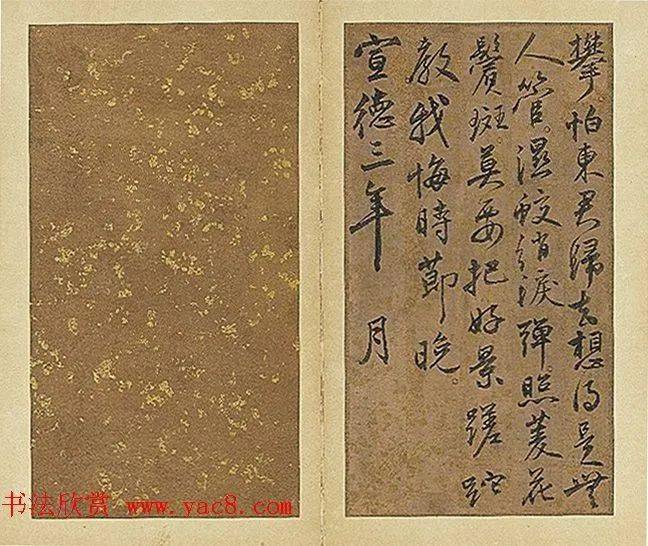 攀。怕東君歸去想得是無
人管。濕鮫綃淚彈照菱花
鬢斑。莫要把好景蹉跎
教我悔時節晚。
宣德三年 月
书法欣赏 www.yac8.com